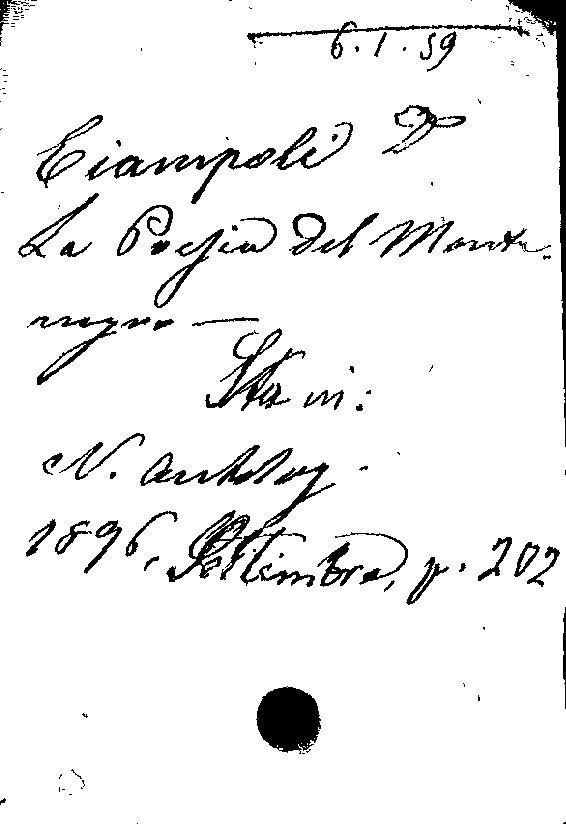 6.1.59
Ciampoli D
La Poesia del Monte-
negro —
Sta in:
N. Antolog.
1896, Settembre, p. 202